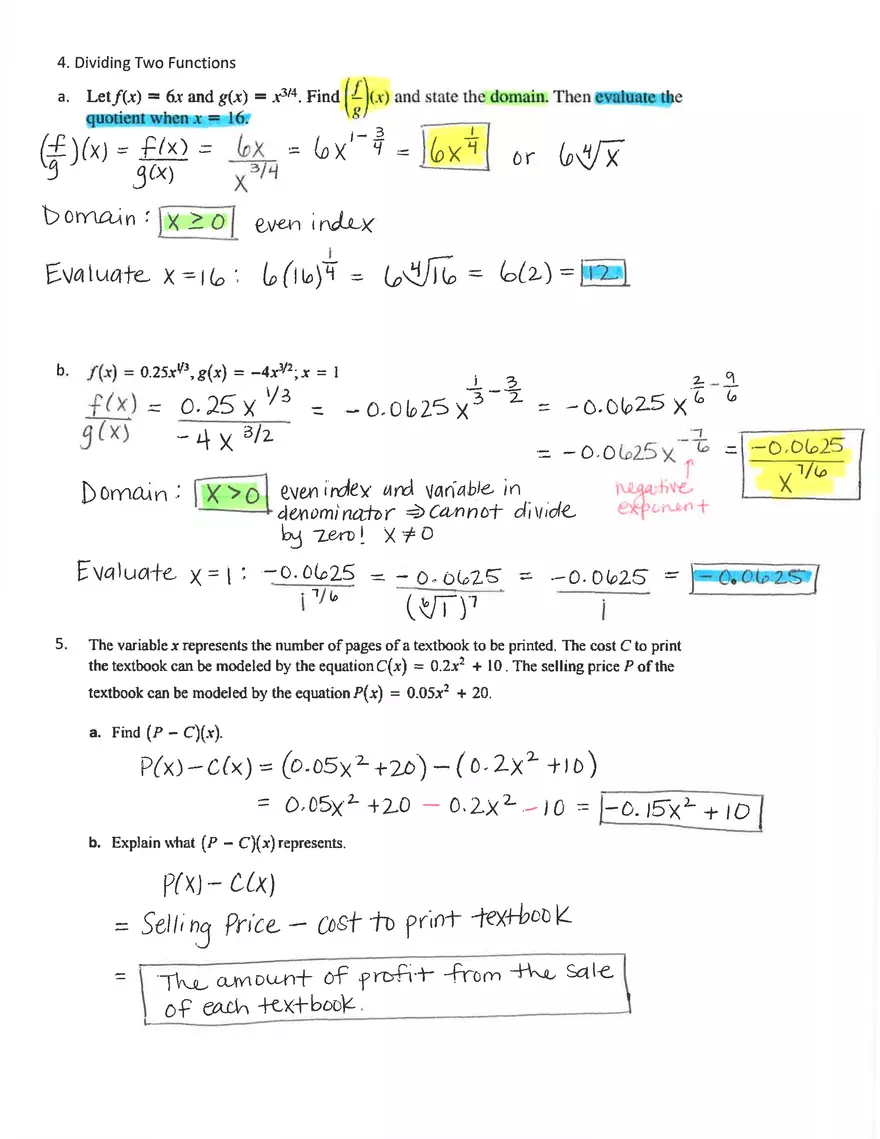 4. Dividing Two Functions
a. Let f(x) = 6x and g(x) = x^(3/4). Find (f/g)(x) and state the domain. Then evaluate the
quotient when x = 16.
(f/g)(x) = f(x)/g(x) = 6x/x^(3/4) = 6x^(1 - 3/4) = 6x^(1/4) or 6∜x
Domain: x ≥ 0 even index
Evaluate x = 16: 6(16)^(1/4) = 6∜16 = 6(2) = 12
b. f(x) = 0.25x^(1/3), g(x) = −4x^(3/2); x = 1
f(x)/g(x) = 0.25x^(1/3)/−4x^(3/2) = −0.0625x^(1/3 − 3/2) = −0.0625x^(2/6 − 9/6)
= −0.0625x^(−7/6) = −0.0625/x^(7/6)
Domain: x > 0 even index and variable in
denominator ⇒ cannot divide
by zero! x ≠ 0
negative
exponent
Evaluate x = 1: −0.0625/1^(7/6) = −0.0625/(⁶√1)^7 = −0.0625/1 = −0.0625
5. The variable x represents the number of pages of a textbook to be printed. The cost C to print
the textbook can be modeled by the equation C(x) = 0.2x² + 10. The selling price P of the
textbook can be modeled by the equation P(x) = 0.05x² + 20.
a. Find (P − C)(x).
P(x) − C(x) = (0.05x² + 20) − (0.2x² + 10)
= 0.05x² + 20 − 0.2x² − 10 = −0.15x² + 10
b. Explain what (P − C)(x) represents.
P(x) − C(x)
= Selling Price − cost to print textbook
= The amount of profit from the sale
of each textbook.